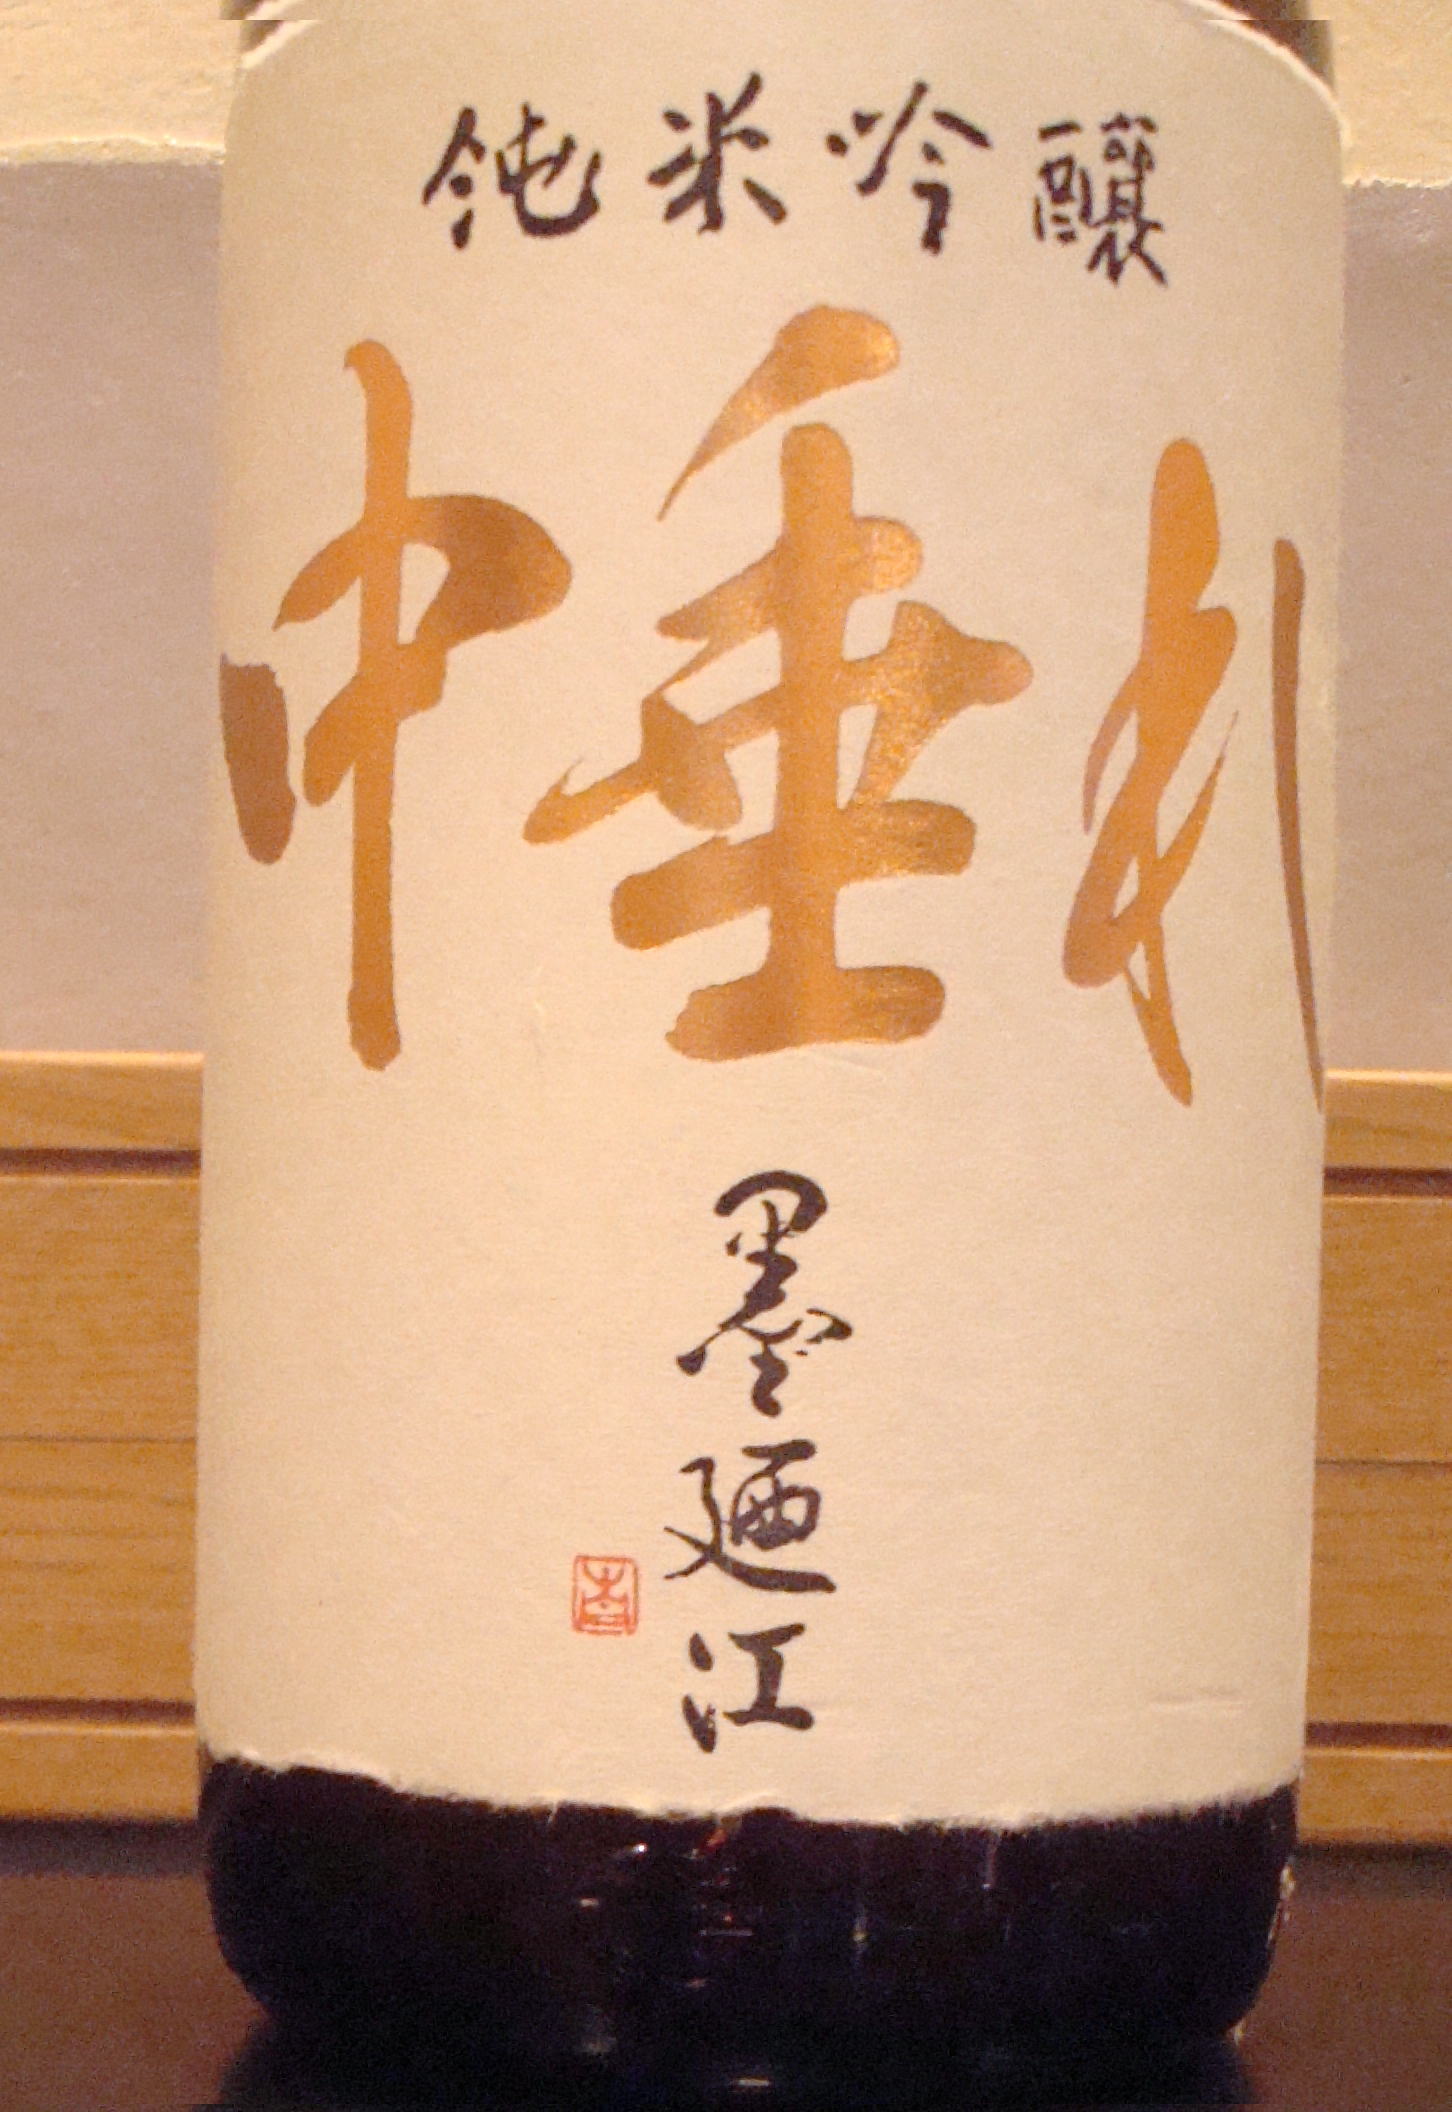 純米吟醸
中垂れ
墨廼江